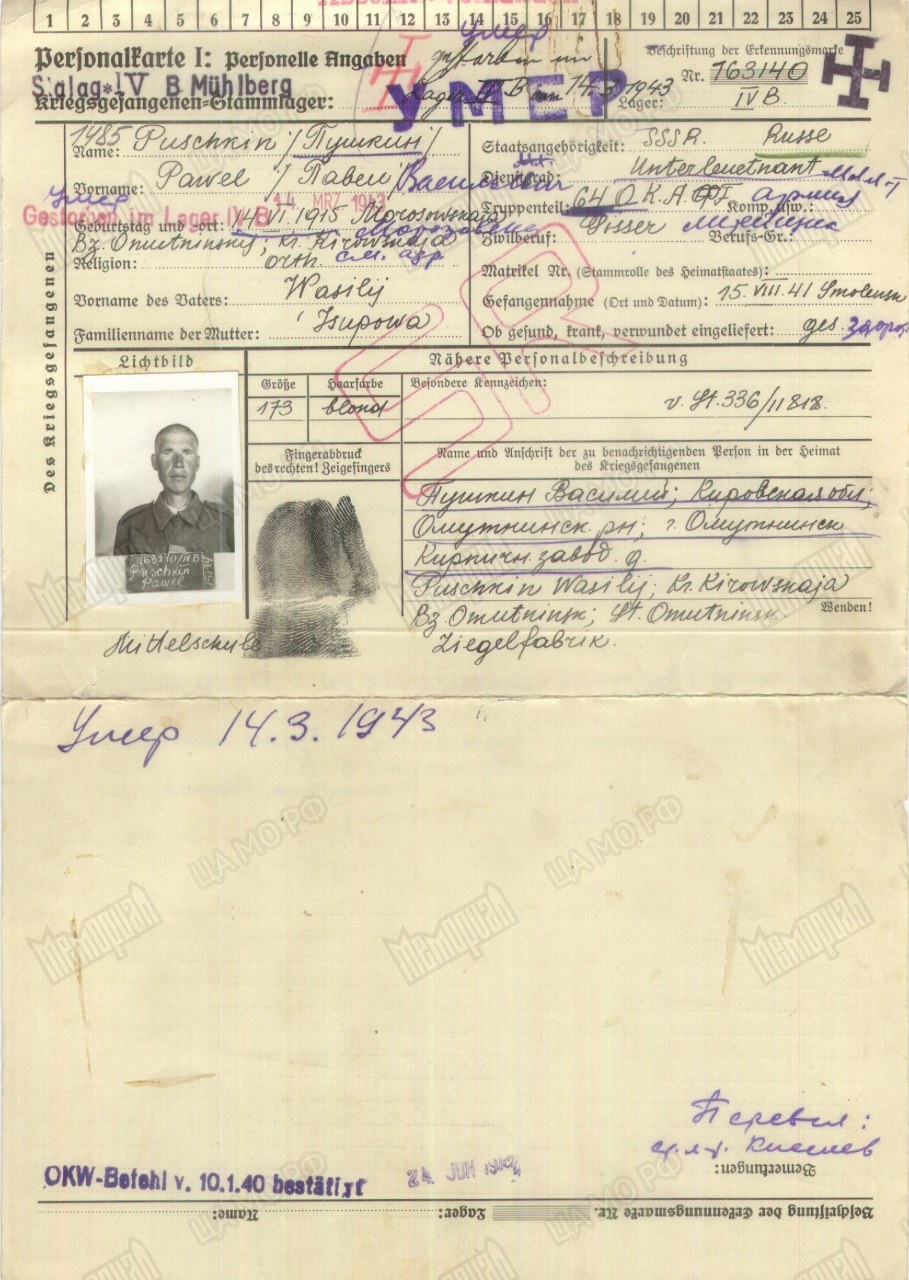 1 2 3 4 5 6 7 8 9 10 11 12 13 14 15 16 17 18 19 20 21 22 23 24 25
Personalkarte I: Personelle Angaben
Умер
gestorben im
Beschriftung der Erkennungsmarke
Stalag IV B Mühlberg
Nr. 163140
Kriegsgefangenen-Stammlager:
Lager IV B am 14.3.1943
УМЕР
Lager: IV B.
Des Kriegsgefangenen
1485
Name: Puschkin /Пушкин/
Staatsangehörigkeit: SSSR. Russe
Vorname: Pawel /Павел/ Васильевич
Dienstgrad: Unterleutnant мл. л-т
Умер
Gestorben im Lager IV B
14 MRZ 1943
Truppenteil: 640 K.A. Komp. usw.: Армии
Geburtstag und -ort: 14.VI.1915 Morosowskaja
Zivilberuf: Berufs-Gr.:
Bz. Omutninskij; Kr. Kirowskaja
Religion: orth.
Matrikel Nr. (Stammrolle des Heimatstaates):
Vorname des Vaters: Wasilij
Gefangennahme (Ort und Datum): 15.VIII.41 Smolensk
Familienname der Mutter: Isupowa
Ob gesund, krank, verwundet eingeliefert: ges. здоров
SR
Lichtbild
Nähere Personalbeschreibung
Größe
Haarfarbe
Besondere Kennzeichen:
173
blond
v. St. 336/11818.
Fingerabdruck
des rechten! Zeigefingers
Name und Anschrift der zu benachrichtigenden Person in der Heimat
des Kriegsgefangenen
Пушкин Василий; Кировская обл;
Омутнинск. рн; г. Омутнинск
Кирпичн. завод. д.
163140/IVB
Puschkin
Pawel
Puschkin Wasilij; Kr. Kirowskaja
Bz. Omutninsk; St. Omutninsk.
Wenden!
Mittelschule
Ziegelfabrik.
Умер 14.3.1943
Перевел:
Киселев
Bemerkungen:
OKW-Befehl v. 10.1.40 bestätigt
24. JUN 1942
Beschriftung der Erkennungsmarke Nr.
Lager:
Name:
Мемориал
ЦАМО РФ